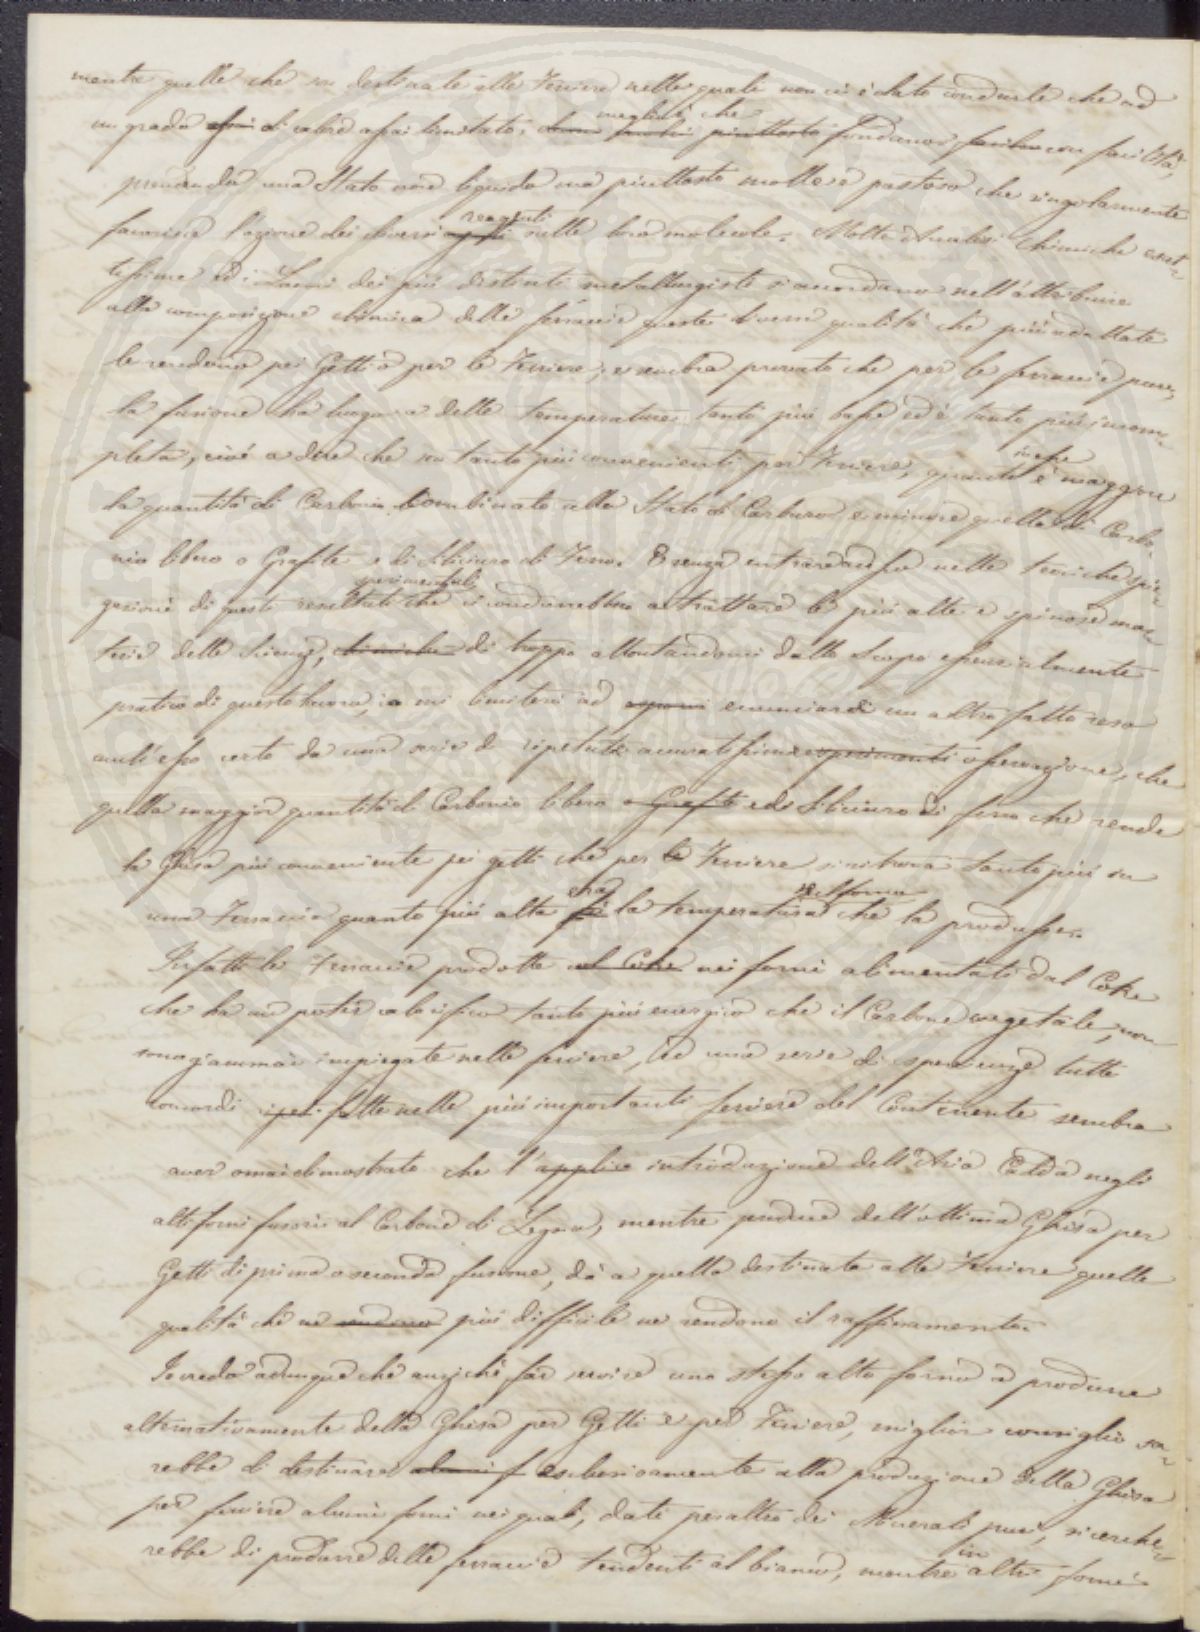 mentre quelle che son destinate alle Ferriere nelle quali non ci è dato condurle che ad
un grado assai di calore assai limitato, meglio è che piuttosto fondano con facilità,
prendendo uno Stato non liquido ma piuttosto molle e pastoso che singolarmente
favorisce l'azione dei diversi reagenti sulle loro molecole. Molte Analisi chimiche esat-
tissime ed i Lavori dei più distinti metallurgisti si accordano nell'attribuire
alla composizione chimica delle ferraccie queste diverse qualità che più adattate
le rendono pei Getti o per le Ferriere; e sembra provato che per le ferraccie pure,
la fusione ha luogo a delle temperature tanto più basse ed è tanto più incom-
pleta, cioè a dire che son tanto più convenienti per Ferriere, quanto in esse è maggiore
la quantità di Carbonio combinato allo Stato di Carburo e minore quella di Carbo-
nio libero o Grafite e di Siliciuro di Ferro. E senza entrare nelle teoriche spie-
gazioni di questi resultati sperimentali che ci condurrebbero a trattare le più alte e spinose ma-
terie delle Scienze, chimiche di troppo allontanandomi dallo Scopo essenzialmente
pratico di questo lavoro, io mi limiterò ad esporvi enunciarvi un altro fatto reso
anch'esso certo da una serie di ripetute accuratissime esperimenti osservazione, che
quella maggior quantità di Carbonio libero o Grafite e di Siliciuro di ferro che rende
la Ghisa più conveniente pei getti che per le Ferriere si ritrova tanto più in
una Ferraccia quanto più alta era la temperatura del forno che la produsse.
Infatti le Ferraccie prodotte col Coke nei forni alimentati dal Coke
che ha un poter calorifico tanto più energico che il Carbone vegetale, non
sono giammai impiegate nelle ferriere, ed una serie di sperienze tutte
concordi fatte nelle più importanti ferriere del Continente sembra
aver omai dimostrato che l'applica introduzione dell'Aria Calda negli
alti forni fusorii al Carbone di Legna, mentre produce dell'ottima Ghisa per
Getti di prima o seconda fusione, dà a quella destinata alle Ferriere quelle
qualità che ne rendono più difficile ne rendono il raffinamento.
Io credo adunque che anziché far servire uno stesso alto forno a produrre
alternativamente della Ghisa per Getti e per Ferriere, miglior consiglio sa-
rebbe di destinare alcuni f esclusivamente alla produzione della Ghisa
per ferriere alcuni forni nei quali, dati peraltro dei Minerali puri, si cerche-
rebbe di produrre delle ferraccie tendenti al bianco, mentre in altri forni